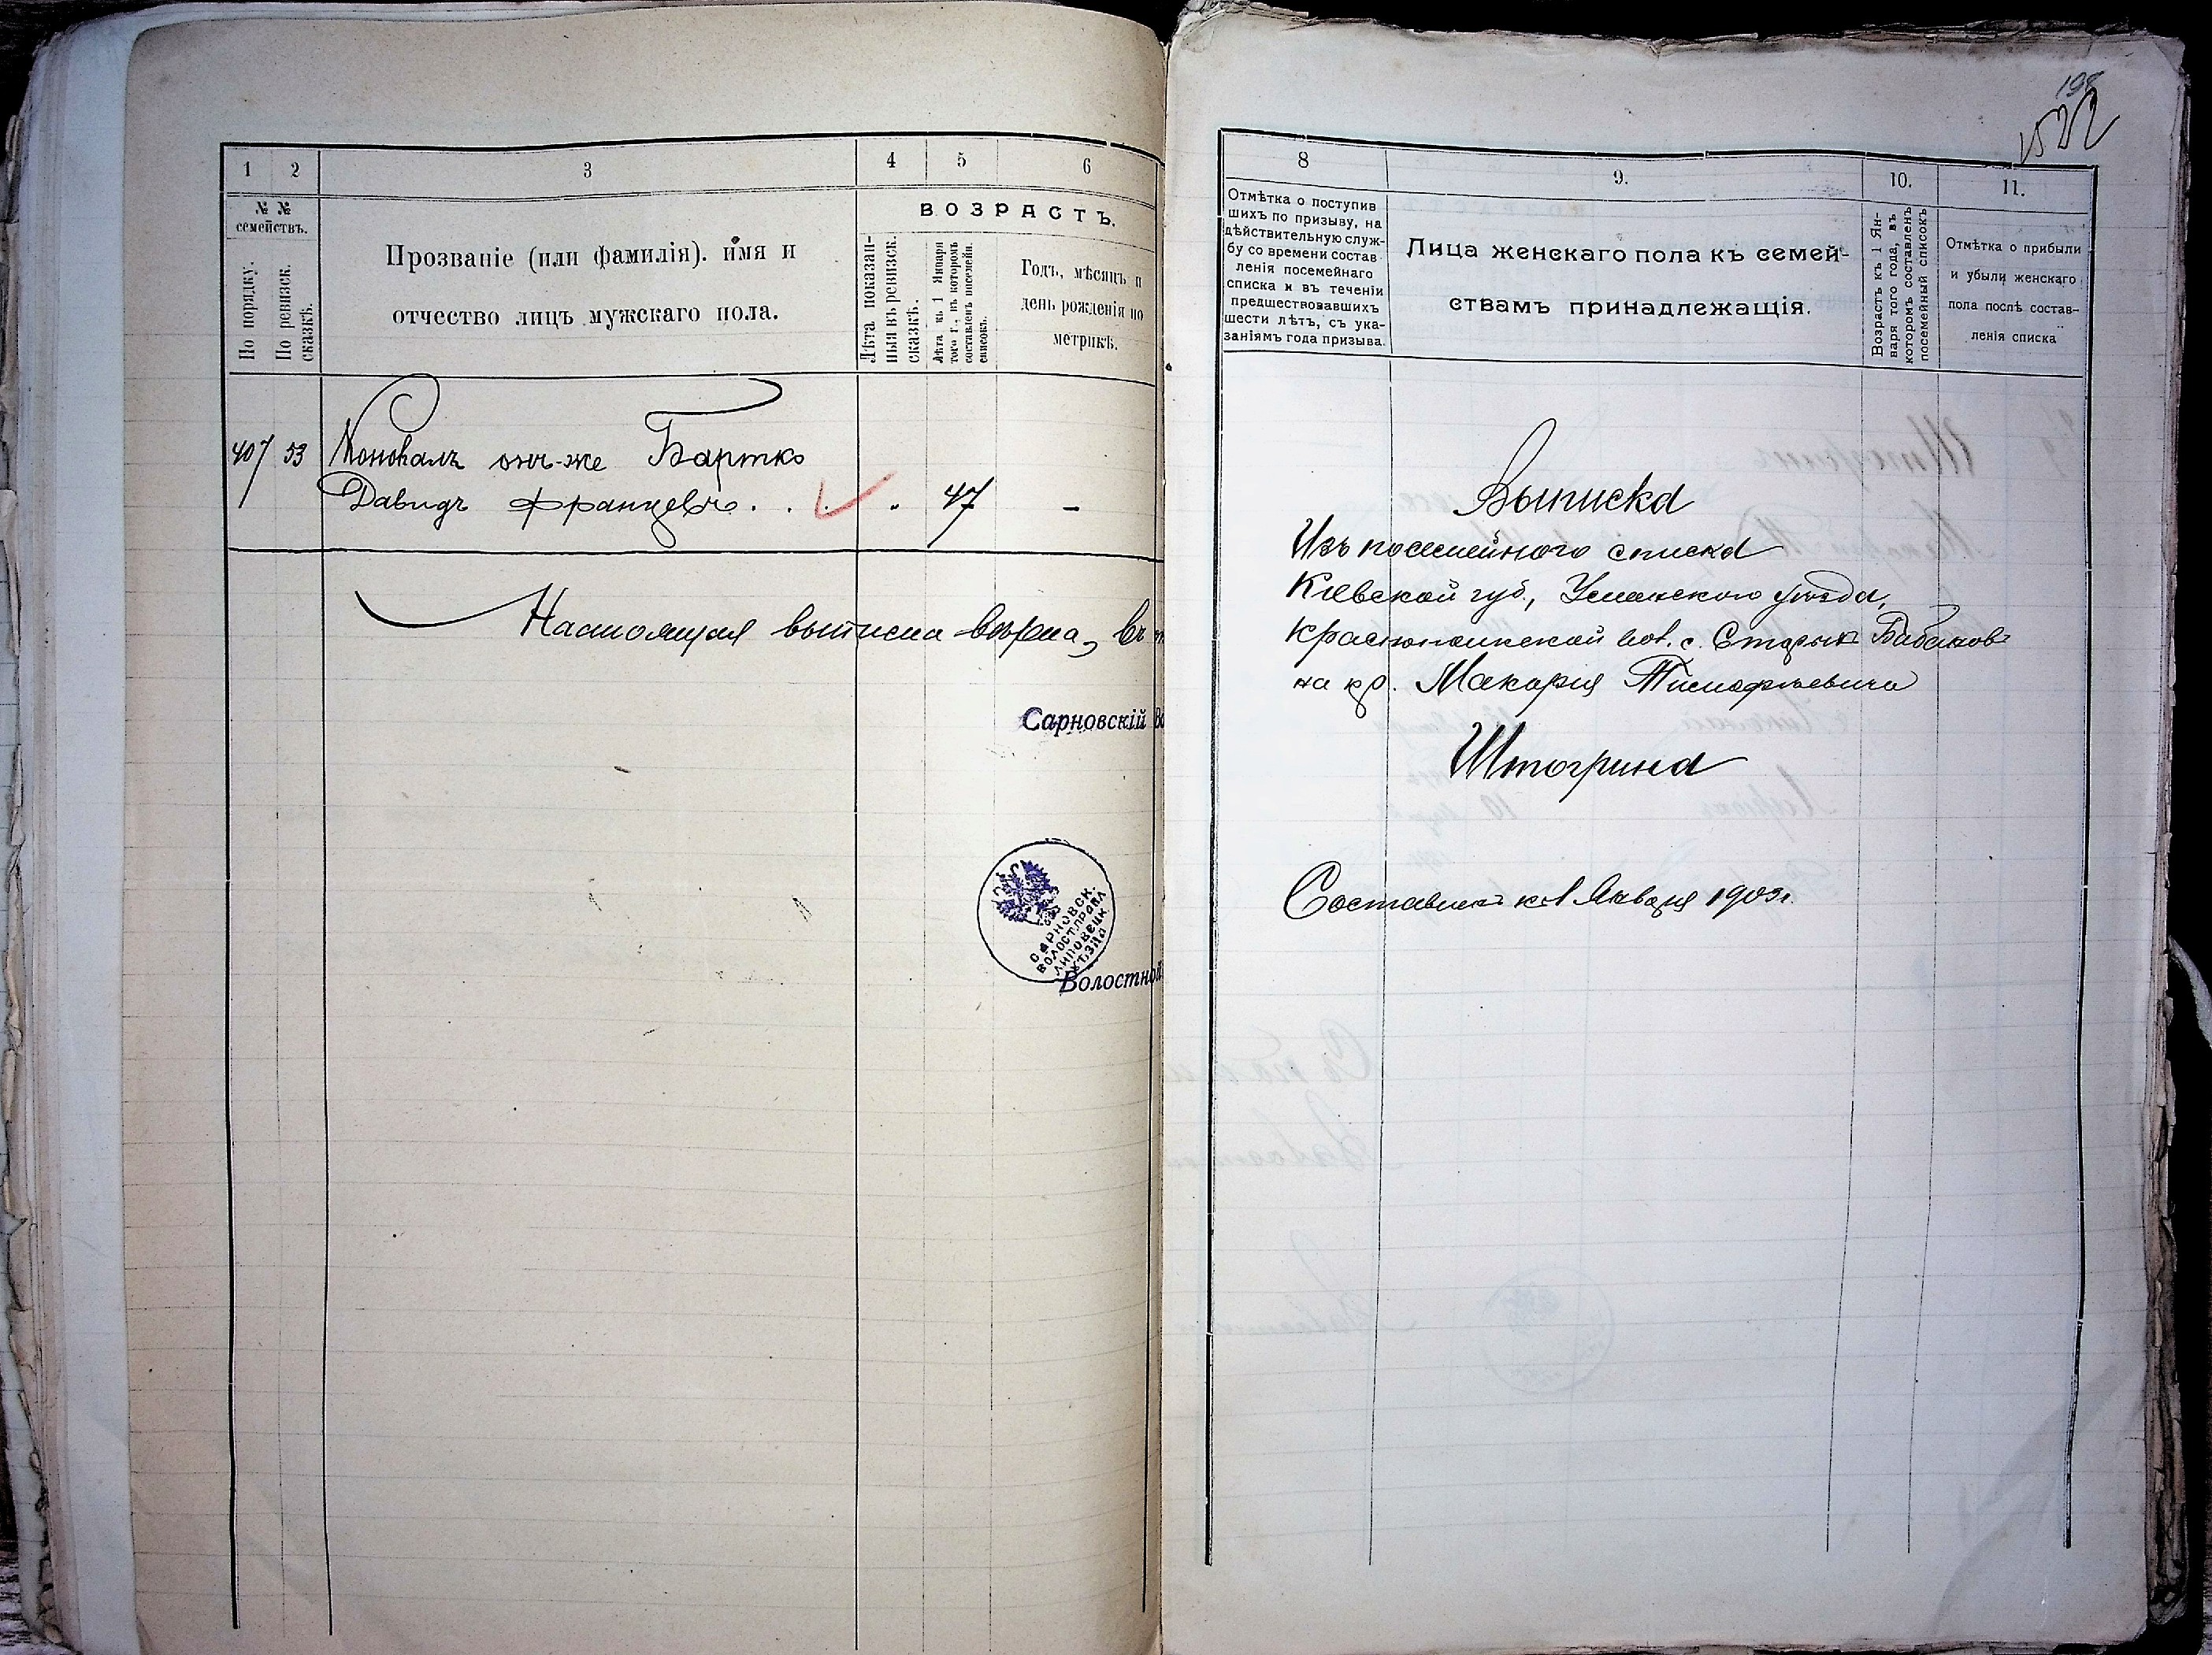 1 2 3 4 5 6
№ № семействъ.
По порядку.
По ревизск. сказкѣ.
Прозваніе (или фамилія). имя и
отчество лицъ мужскаго пола.
ВОЗРАСТЪ.
Лѣта показан-
ныя въ ревизск.
сказкѣ.
Лѣта къ 1 Января
того г., въ которомъ
составленъ посемейн.
списокъ.
Годъ, мѣсяцъ и
день рожденія по
метрикѣ.
407 53 Коновалъ онъ-же Бартко
Давидъ Францевъ . . . " 47 –
Настоящая выписка вѣрна, въ
Сарновскій Во
САРНОВСК.
ВОЛОСТ. ПРАВЛ
ЛИПОВЕЦК
УѢЗДА
Волостной
198
1522
8 9. 10. 11.
Отмѣтка о поступив
шихъ по призыву, на
дѣйствительную служ-
бу со времени состав
ленія посемейнаго
списка и въ теченіи
предшествовавшихъ
шести лѣтъ, съ ука-
заніямъ года призыва.
Лица женскаго пола къ семей-
ствамъ принадлежащія.
Возрастъ къ 1 Ян-
варя того года, въ
которомъ составленъ
посемейный списокъ
Отмѣтка о прибыли
и убыли женскаго
пола послѣ состав-
ленія списка
Выписка
Изъ посемейного списка
Кіевской губ., Уманского уѣзда,
вол. с. Старыхъ Бабановъ
на кр. Макарія Тимофѣевича
Штогрина
Составленъ к 1 Января 190 г.